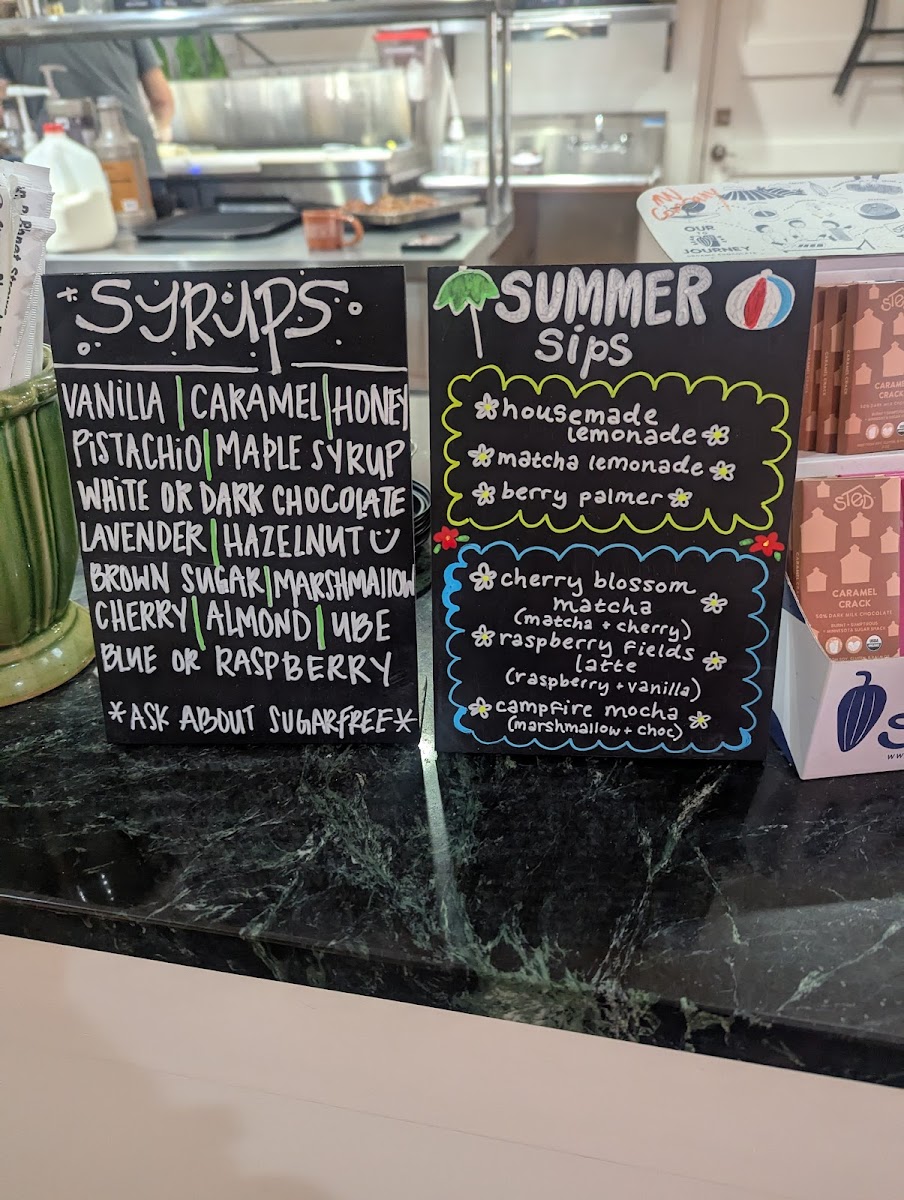 SYRUPS
VANILLA | CARAMEL | HONEY
PISTACHIO | MAPLE SYRUP
WHITE OR DARK CHOCOLATE
LAVENDER | HAZELNUT
BROWN SUGAR | MARSHMALLOW
CHERRY | ALMOND | UBE
BLUE OR RASPBERRY
*ASK ABOUT SUGARFREE*
SUMMER
sips
housemade
lemonade
matcha lemonade
berry palmer
cherry blossom
matcha
(matcha + cherry)
raspberry fields
latte
(raspberry + vanilla)
campfire mocha
(marshmallow + choc)
OUR
JOURNEY
CARAMEL
CRACK
CARAMEL
CRACK
50% DARK MILK CHOCOLATE